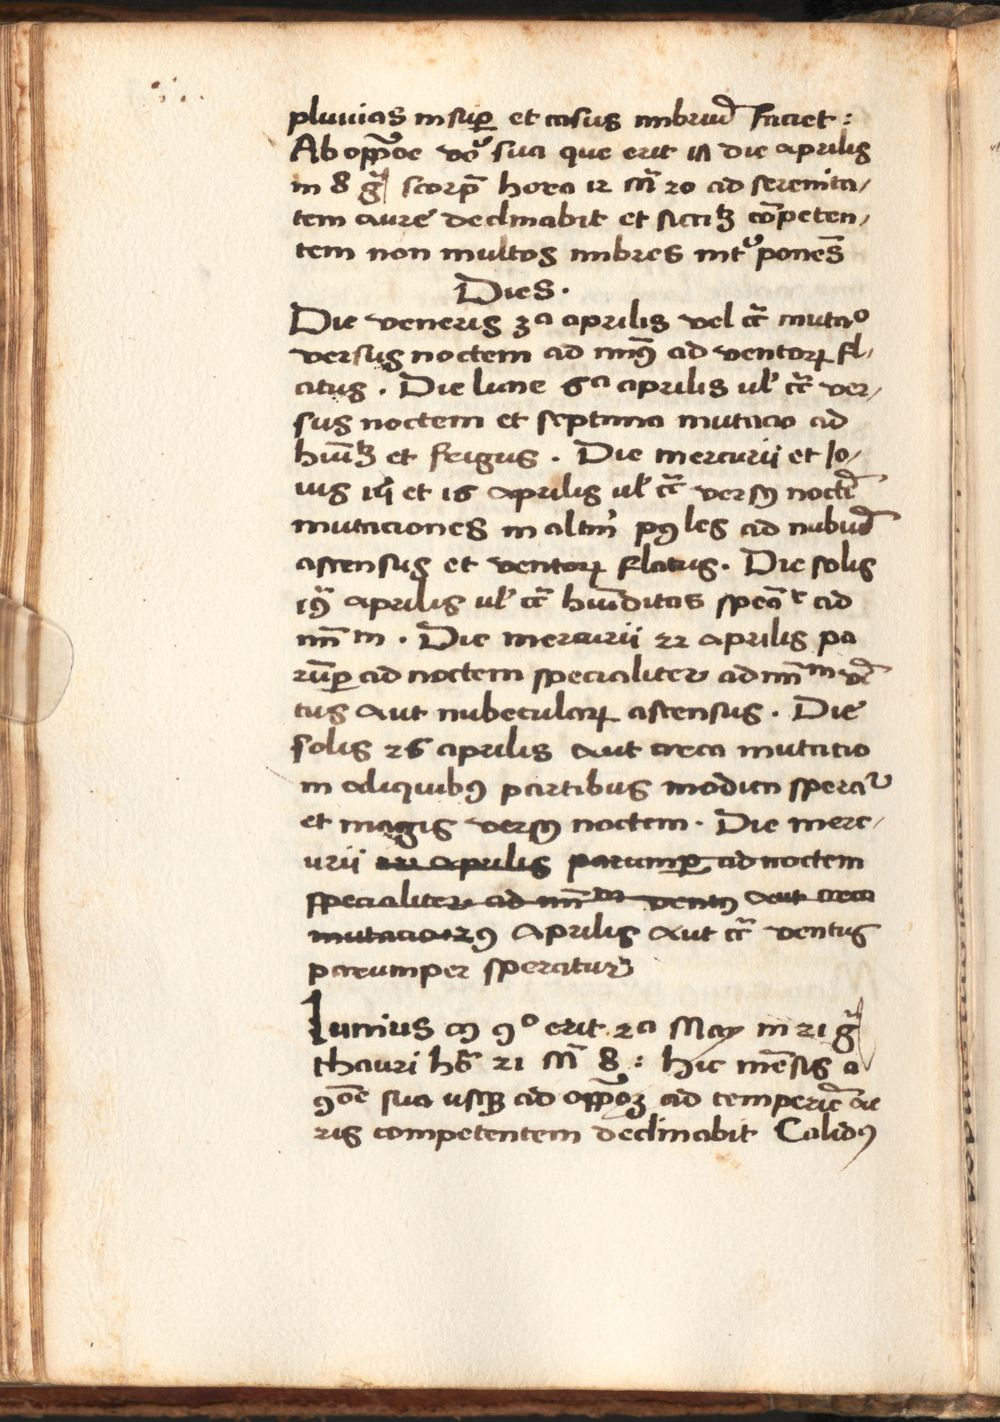 pluuias insuꝑ et casus imbriū faciet :
Ab opp̄oe vō sua que erit die aprilis
in 8 gͣ scorp̄ hora 12 m̄ 20 ad serenita/
tem aure declinabit et siccitꝫ cōpeten/
tem non multos imbres int͛ponēs
Dies .
Die veneris 3ª aprilis vel cc̄ᵃ mutaᵒ
versus noctem ad ad ventoꝝ fl/
atus . Die lune 6ª aprilis ul̕ cc̄ᵃ ver/
sus noctem et septima mutacio ad
et frigus . Die mercurii et Jo/
uis et 16 aprilis ul̕ cc̄ᵃ versꝰ noctē
mutaciones in ad nubiū
ascensus et ventoꝝ flatus . Die solis
19 aprilis ul̕ cc̄ᵃ hūiditas ad
. Die mercurii 22 aprilis pa
rūꝑ ad noctem specialiter ad vē
tus aut nubecularꝝ ascensus . Die
solis 26 aprilis aut circa mutatio
in aliquibꝰ partibus modica
et magis versꝰ noctem . Die merc/
urii aprilis parumꝑ ad noctem
specialiter ad ventꝰ aut circa
mutacio 29 aprilis aut cc̄ᵃ ventus
parumper speratur
Iunius erit 2ª May in 21 gͣ
thauri hō 21 m̄ 8 : hic mēsis a
ꝯōe sua usqꝫ ad opp̄oꝫ ad temperiē ae
ris competentem declinabit Calidꝰ